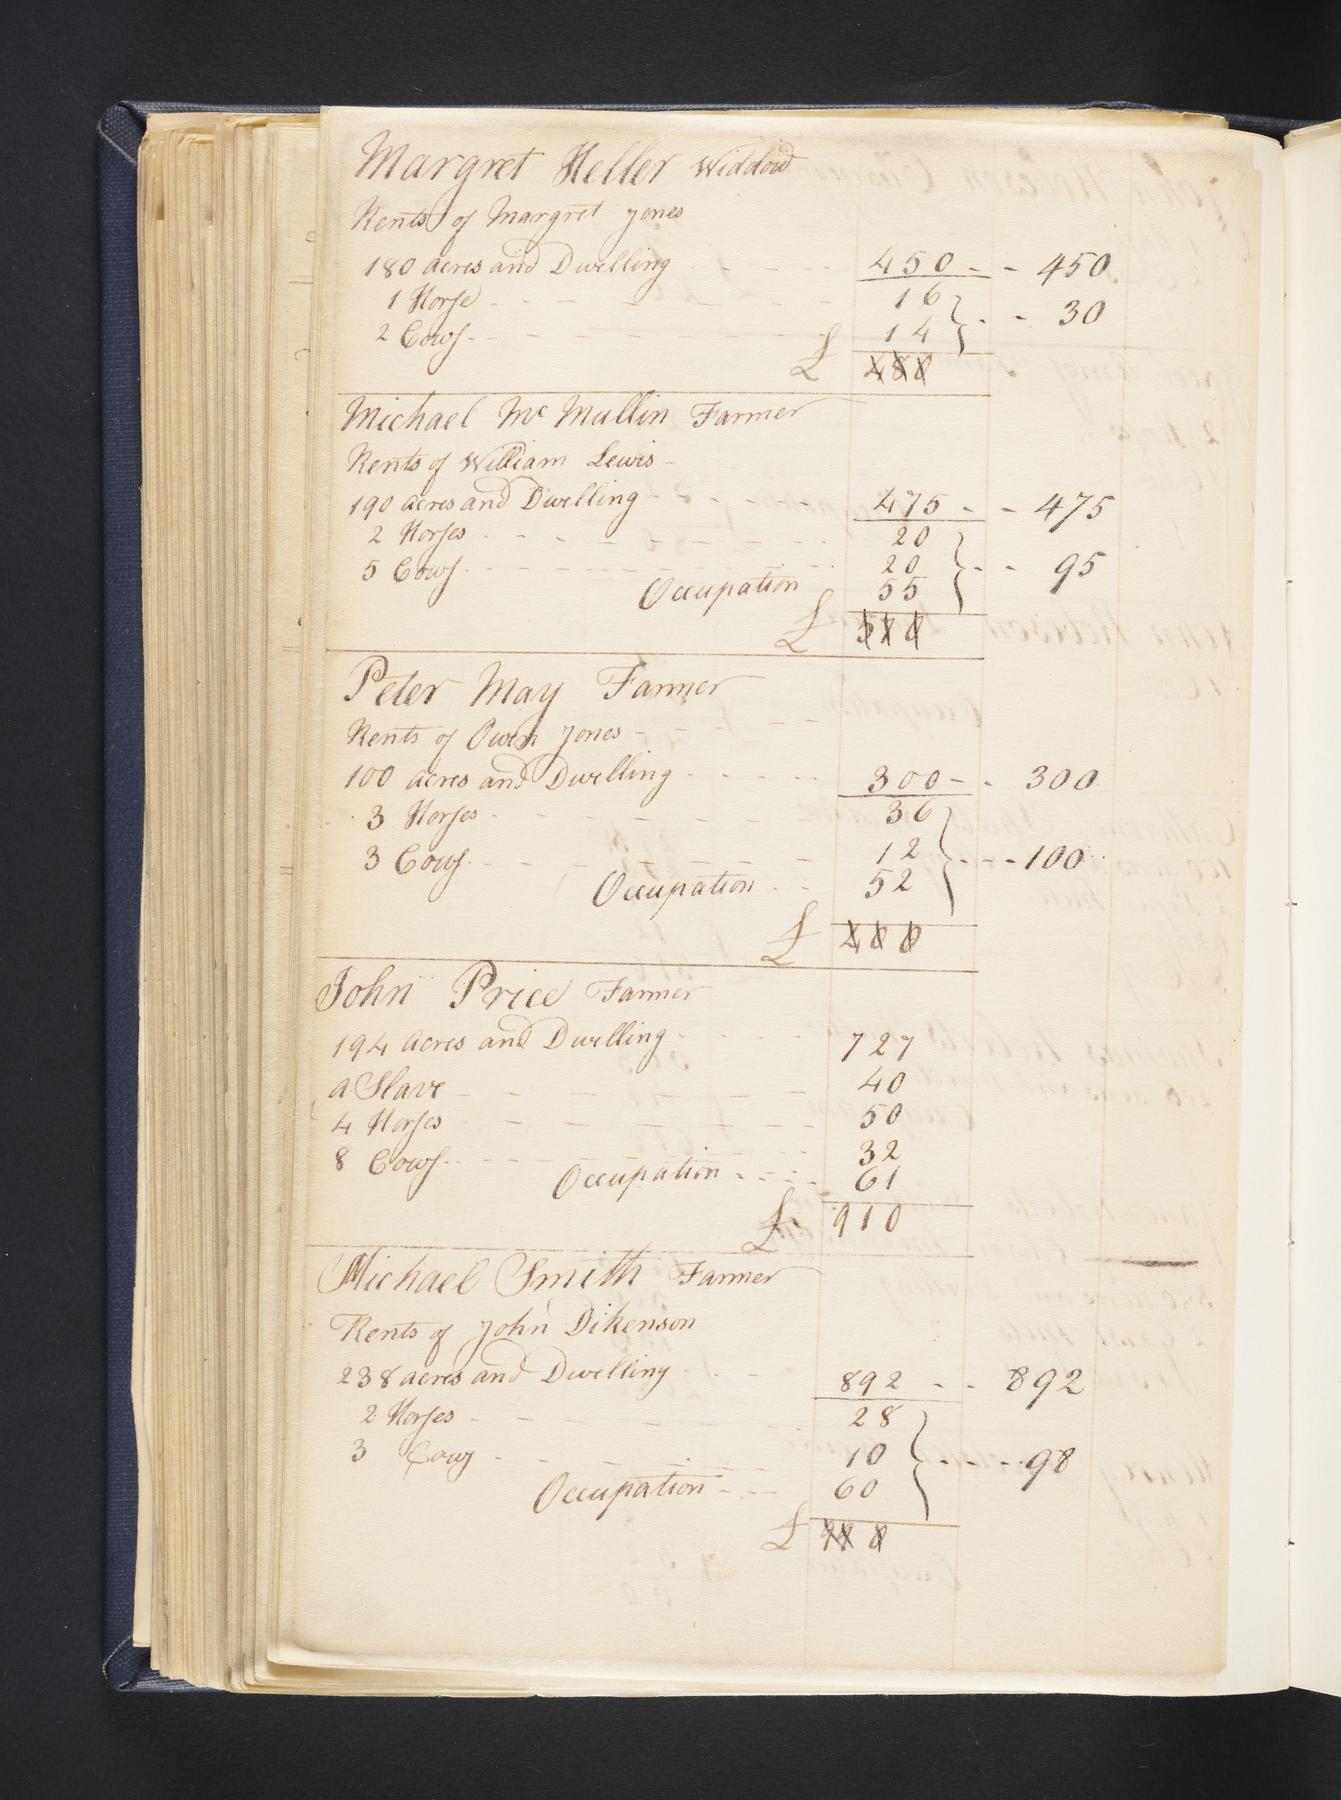 Margret Keller Widdow
Rents of Margret Jones
180 acres and Dwelling 450 - - 450
1 Horse 16
2 Cows 14 } - - 30
£ 480
Michael Mc Mullin Farmer
Rents of William Lewis
190 acres and Dwelling 475 - - 475
2 Horses 20
5 Cows 20 } - - 95
Occupation 55
£ 570
Peter May Farmer
Rents of Owen Jones
100 acres and Dwelling 300 - - 300
3 Horses 36
3 Cows 12 } - - - 100
Occupation 52
£ 400
John Price Farmer
194 acres and Dwelling 727
a Slave 40
4 Horses 50
8 Cows 32
Occupation 61
£ 910
Michael Smith Farmer
Rents of John Dikenson
238 acres and Dwelling 892 - - 892
2 Horses 28
3 Cows 10 } - - - 98
Occupation 60
£ 990